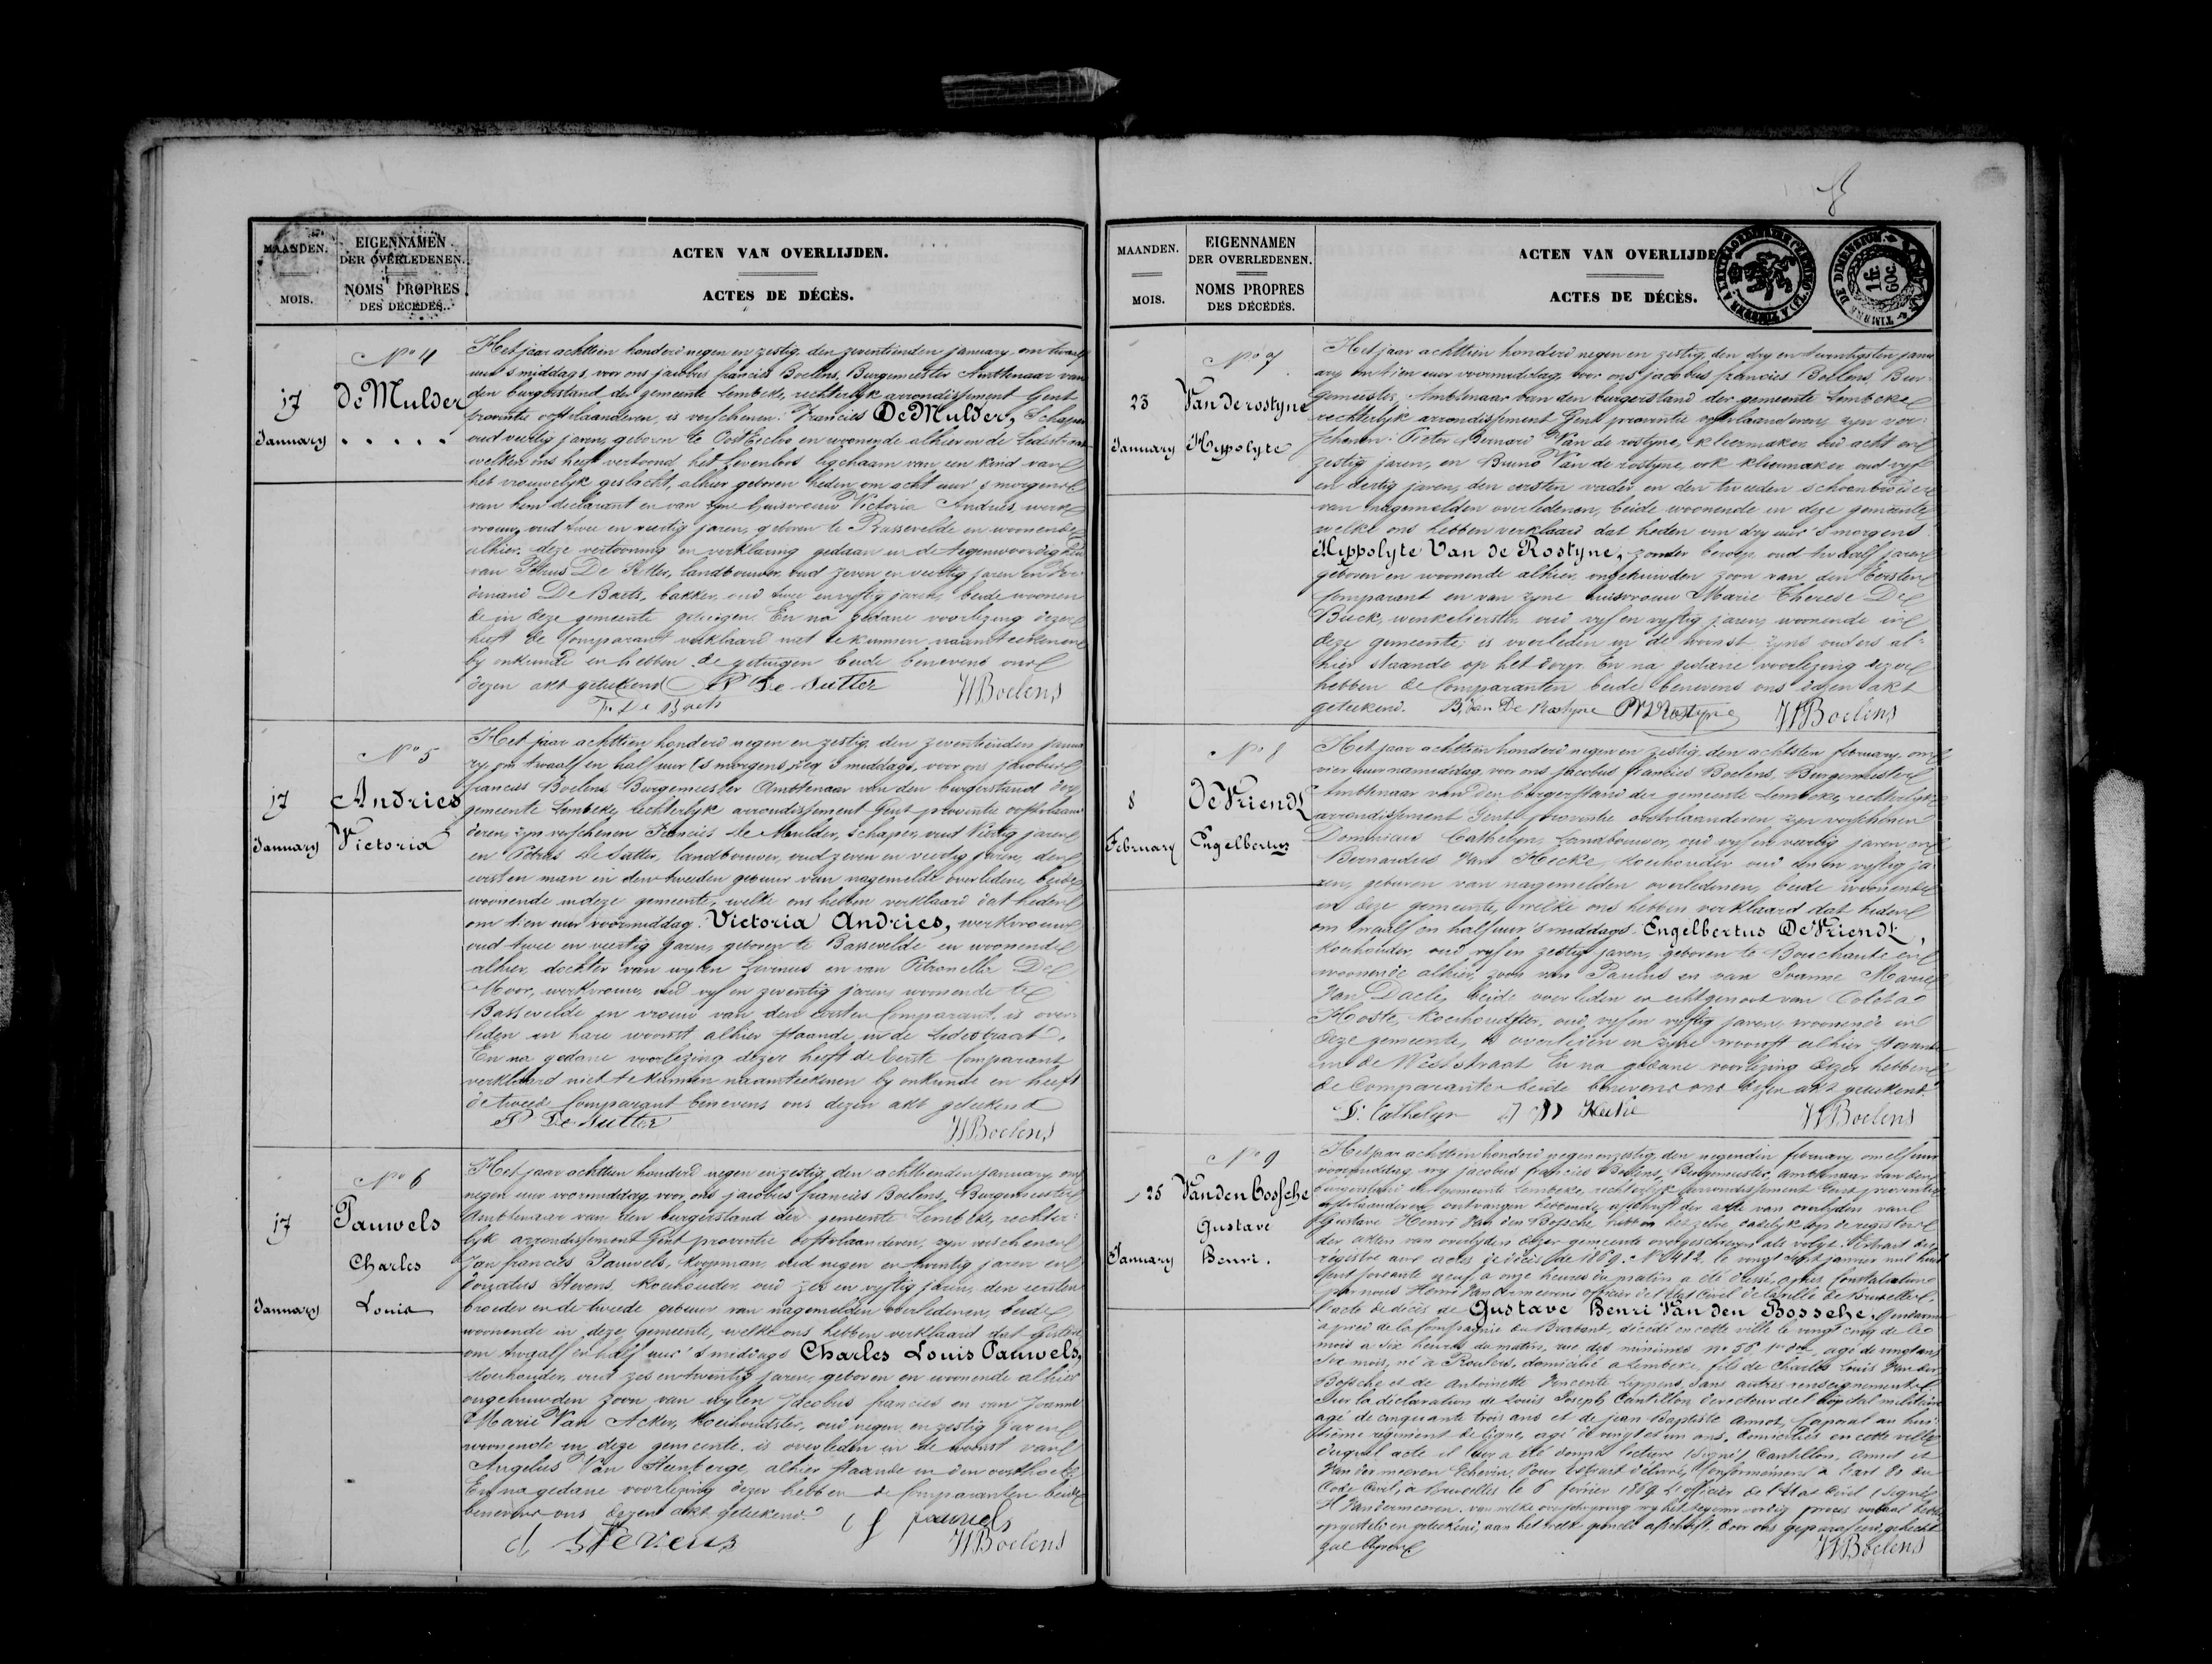 MAANDEN.
MOIS.
EIGENNAMEN
DER OVERLEDENEN.
NOMS PROPRES
DES DÉCÉDÉS.
ACTEN VAN OVERLIJDEN.
ACTES DE DÉCÈS.
No 4
17
January
De Mulder
. . . . .
Het jaar achttien honderd negen en zestig, den zeventienden january, om twaalf
uur 's middags, voor ons jacobus francies Boelens, Burgemeester Ambtenaar van
den burgerstand der gemeente Lembeke, rechterlyk arrondissement Gent
provintie oostvlaanderen, is verschenen: Francies De Mulder, Schaper
oud veertig jaren, geboren te Oost Eecloo en woonende alhier in de Ledestraat
welken ons heeft vertoond het Levenloos ligchaam van een kind van
het vrouwelyk geslacht, alhier geboren heden om acht uur 's morgens
van hem declarant en van zyne huisvrouw Victoria Andries, werk
vrouw, oud twee en veertig jaren, geboren te Bassevelde en woonende
alhier. deze vertooning en verklaring gedaan in de tegenwoordigheid
van Petrus De Sutter, landbouwer, oud zeven en veertig jaren en Fer
dinand De Baets, bakker, oud twee en vyftig jaren, beide woonen
de in deze gemeente getuigen. En na gedane voorlezing dezer
heeft de Comparant verklaard niet te kunnen naamteekenen
by onkunde en hebben de getuigen beide benevens ons
dezen akt geteekend P De Sutter
F. De Baets JFBoelens
No 5
17
January
Andries
Victoria
Het jaar achttien honderd negen en zestig, den zeventienden janua
ry, om twaalf en half uur 's middags, voor ons jacobus
francies Boelens Burgemeester Ambtenaar van den burgerstand der
gemeente Lembeke, rechterlyk arrondissement Gent provintie oostvlaan
deren, zyn verschenen Francies De Mulder, schaper, oud Veertig jaren
en Petrus De Sutter, landbouwer, oud zeven en veertig jaren, den
eersten man en den tweeden gebuur van nagemelde overledene, beide
woonende in deze gemeente, welke ons hebben verklaard dat heden
om tien uur voormiddag Victoria Andries, werkvrouw
oud twee en veertig Jaren, geboren te Bassevelde en woonende
alhier, dochter van wylen Livinus en van Petronella De
Moor, werkvrouw, oud vyf en zeventig jaren woonende te
Bassevelde en vrouw van den eersten Comparant, is over
leden in hare woonst alhier staande in de Ledestraat.
En na gedane voorlezing dezer heeft de Eerste Comparant
verklaard niet te kunnen naamteekenen by onkunde en heeft
de tweede Comparant benevens ons dezen akt geteekend
P De Sutter JFBoelens
No 6
17
January
Pauwels
Charles
Louis
Het jaar achttien honderd negen en zestig, den achttienden january, om
negen uur voormiddag, voor ons jacobus francies Boelens, Burgemeester
Ambtenaar van den burgerstand der gemeente Lembeke, rechter
lyk arrondissement Gent provintie oostvlaanderen, zyn verschenen
Jan francies Pauwels, koopman, oud negen en twintig jaren en
Donatus Stevens, koeihouder, oud zes en vyftig jaren, den eersten
broeder en de tweede gebuur van nagemelden overledenen, beide
woonende in deze gemeente, welke ons hebben verklaard dat gisteren
om twaalf en half uur 's middags Charles Louis Pauwels,
koeihouder, oud zes en twintig jaren, geboren en woonende alhier
ongehuwden zoon van wylen Jacobus francies en van Joanna
Marie Van Acker, koeihoudster, oud negen en zestig Jaren
woonende in deze gemeente. is overleden in de woonst van
Angelus Van Steenberge alhier staande in den oosthoek.
En na gedane voorlezing dezer hebben de Comparanten beide
benevens ons dezen akt geteekend. J f pauwels
d Stevens JFBoelens
MAANDEN.
MOIS.
EIGENNAMEN
DER OVERLEDENEN.
NOMS PROPRES
DES DÉCÉDÉS.
ACTEN VAN OVERLIJDE
ACTES DE DÉCÈS.
TIMBRE DE DIMENSION
1F
60C
No 7
23
January
Van de rostyne
Hypolyte
Het jaar achttien honderd negen en zestig, den dry en twintigsten janu
ary om tien uur voormiddag, voor ons jacobus francies Boelens, Bur
gemeester, Ambtenaar van den burgerstand der gemeente Lembeke
rechterlyk arrondissement Gent provintie oostvlaanderen, zyn ver
schenen: Pieter Bernard Van de rostyne, kleermaker, oud acht en
zestig jaren, en Bruno Van de rostyne, ook kleermaker oud vyf
en dertig jaren, den eersten vader en den tweeden schoonbroeder
van nagemelden overledenen, beide woonende in deze gemeente
welke ons hebben verklaard dat heden om dry uur 's morgens
Hippolyte Van de Rostyne, zonder beroep, oud twaalf jaren
geboren en woonende alhier, ongehuwden zoon van den Eersten
Comparant en van zyne huisvrouw Marie Therese De
Buck, winkelierster, oud vyf en vyftig jaren, woonende in
deze gemeente; is overleden in de woonst zyns ouders al-
hier staande op het dorp. En na gedane voorlezing dezer
hebben de Comparanten beide benevens ons dezen akt
geteekend. B. Van De Rostyne JFBoelens
No 8
8
February
De Vriendt
Engelbertus
Het jaar achttien honderd negen en zestig, den achtsten february, om
vier uur namiddag, voor ons jacobus francies Boelens, Burgemeester
Ambtenaar van den burgerstand der gemeente Lembeke, rechterlyk
arrondissement Gent provintie oostvlaanderen zyn verschenen
Dominicus Cathelyn, Landbouwer, oud vyf en veertig jaren en
Bernardus Van Hecke, koeihouder oud en vyftig ja
ren, geburen van nagemelden overledenen, beide woonende
in deze gemeente, welke ons hebben verklaard dat heden
om twaalf en half uur 's middags Engelbertus De Vriendt,
koeihouder, oud vyf en zestig jaren, geboren te Bouchaute en
woonende alhier, zoon van Paulus en van Joanne Marie
Van Daele, beide overleden en echtgenoot van Coleta
Hoste, koeihoudster, oud vyf en vyftig jaren, woonende in
deze gemeente, is overleden in zyne woonst alhier staande
in de Weststraat En na gedane voorlezing dezer hebben
de Comparanten beide benevens ons dezen akt geteekend.
D. Cathelyn Hecke JFBoelens
No 9
25
January
Van den bossche
Gustave
Henri.
Het jaar achttien honderd negen en zestig, den negenden february om elf uur
voormiddag, wy jacobus francies Boelens, Burgemeester, Ambtenaar van den
burgerstand der gemeente Lembeke, rechterlyk arrondissement Gent provintie
oostvlaanderen, ontvangen hebbende afschrift der akte van overlyden van
Gustave Henri Van den Bossche, hebben het zelve, dadelyk op de registers
der akten van overlyden dezer gemeente overgeschreven als volgt. Extrait des
registre aux actes de décès de 1869. No 482. le vingt Sept janvier mil huit
Cent soixante neuf, à onze heures du matin a été dressé, après Constatation
par nous Henri Van dermeeren officier de l'Etat Civil de la ville de Bruxelles
l'acte de décès de Gustave Henri Van den Bossche, Gendarme
à pied de la Compagnie du Brabant, décédé en cette ville le vingt cinq de ce
mois à Six heures du matin, rue des minimes no 56, agé de vingt ans
Six mois, né à domicilié à Lembeke, fils de Charles Louis Van den
Bossche et de Antoinette Vincente Lippens, Sans autres renseignements.
Sur la déclaration de Louis Joseph Cantillon directeur de l'hôpital militaire
agé de cinquante trois ans et de jean Baptiste Annot, Caporal au hui
tième régiment de ligne, agé de vingt et un ans, domiciliés en cette ville
duquel acte il leur a été donné lecture (Signé) Cantillon, Annot et
Van der meeren Echevin, Pour Extrait délivré, Conformément à l'art du
Code Civil, à Bruxelles le 6 février 1869 L'officier de l'Etat Civil (Signé)
H Vandermeeren. van welke overschryving wy het tegenwoordig proces verbaal hebben
opgesteld en geteekend, aan het welk gemeld afschrift, door ons geparafeerd, gehecht
zal blyven JFBoelens